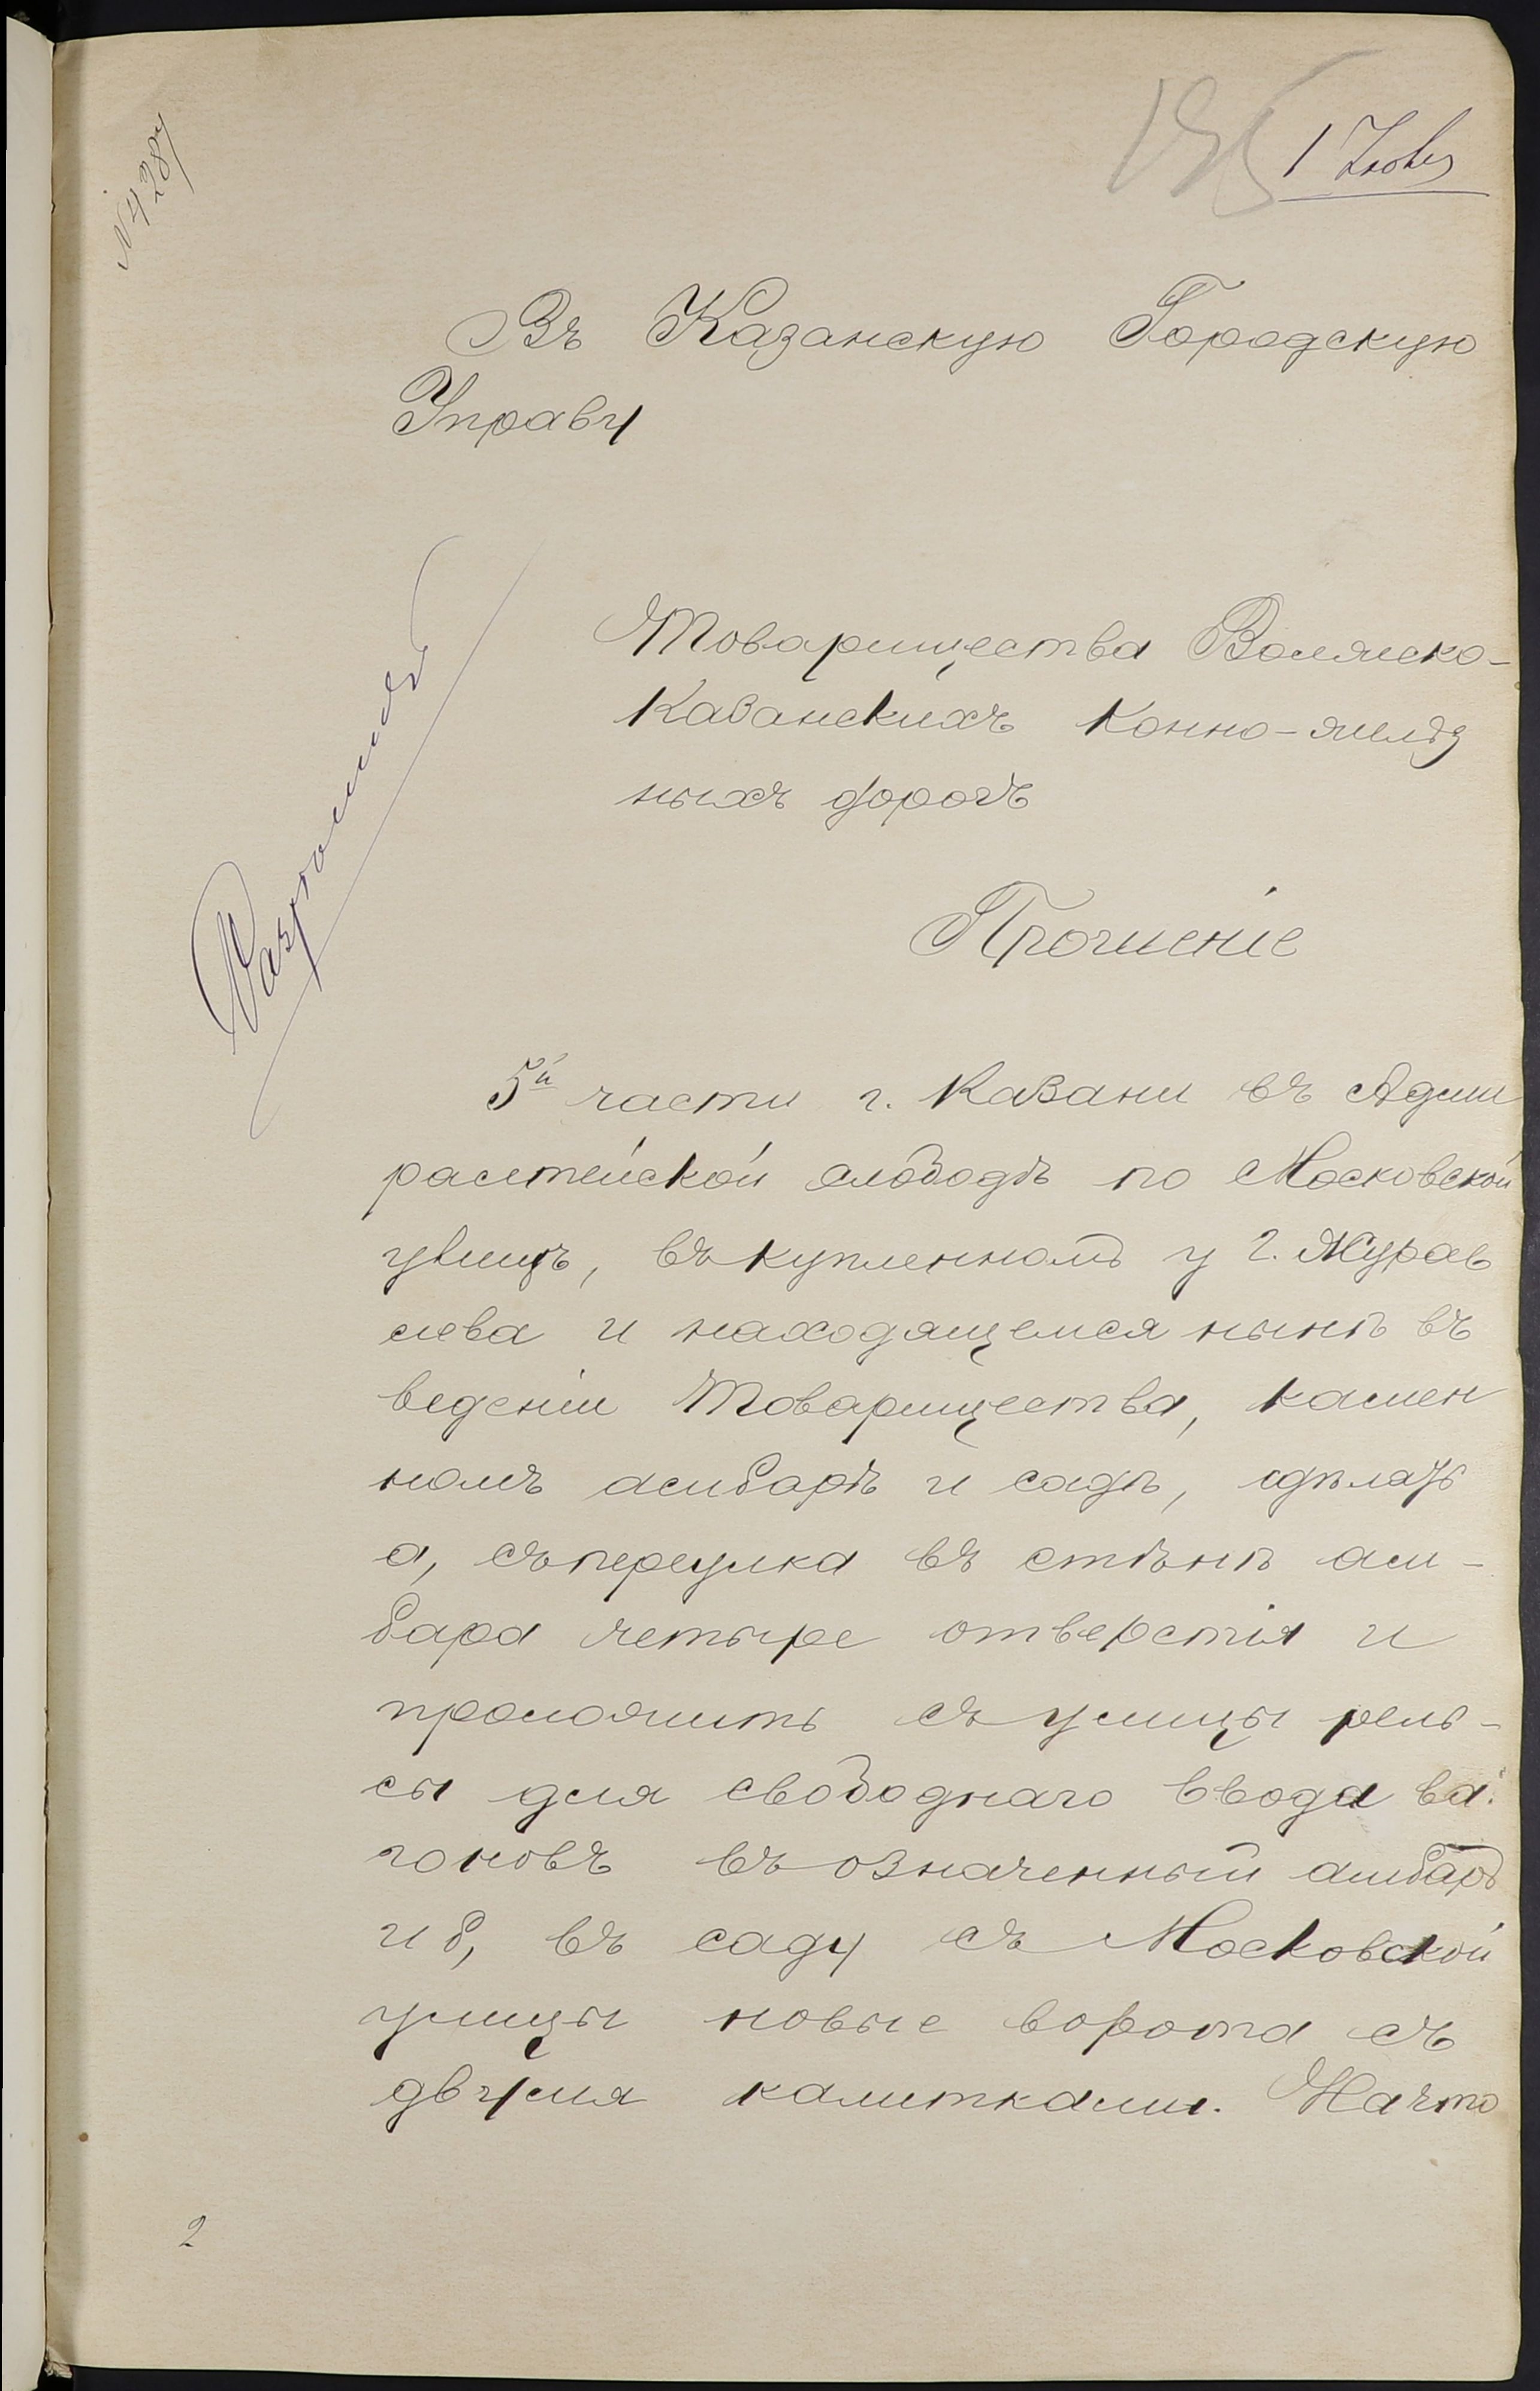 № 4287
1 Июня
Въ Казанскую Городскую
Управу
Товарищества Волжско-
Казанскихъ Конно-желѣз
ныхъ дорогъ
Прошеніе
5й части г. Казани въ Адми
ралтейской слободѣ по Московской
улицѣ, въ купленномъ у г. Журав
лева и находящемся нынѣ въ
веденіи Товарищества, камен
номъ амбарѣ и садѣ, сдѣлать
а, съ переулка въ стѣнѣ ам-
бара четыре отверстія и
проложить съ улицы рель-
сы для свободнаго ввода ва-
гоновъ въ означенный амбаръ
и б, въ саду съ Московской
улицы новые ворота съ
двумя калитками. На что
Разрѣшить
2